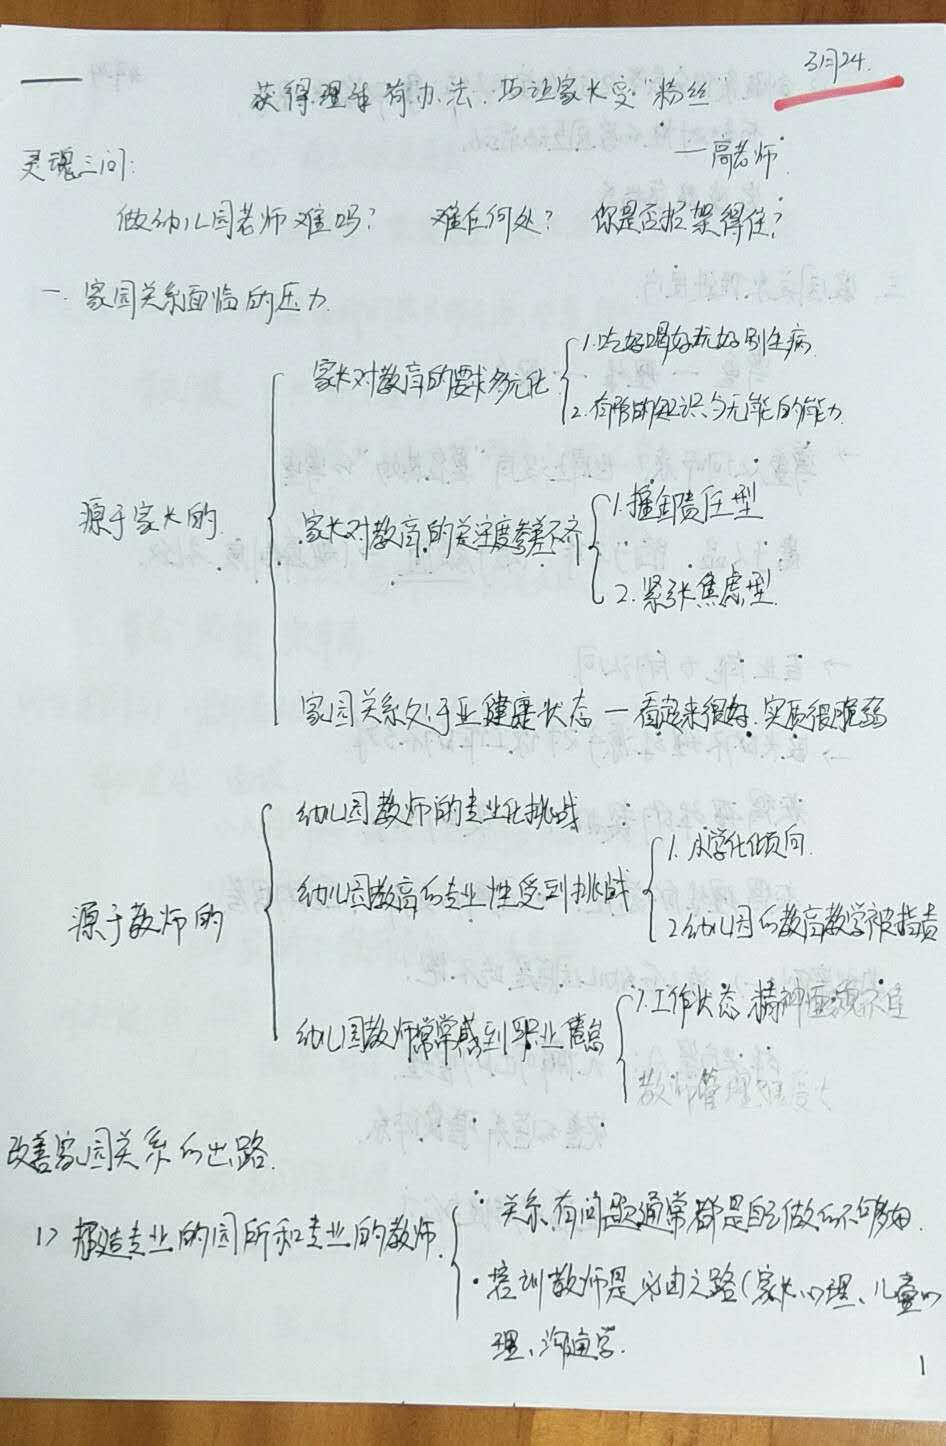 3月24.
获得理解有办法.巧让家长变“粉丝”
—高老师.
灵魂三问:
做幼儿园老师难吗? 难在何处? 你是否招架得住?
一. 家园关系面临的压力.
源于家长的
家长对教育的要求多元化
1.吃好喝好玩好别生病.
2.有限的知识与无能的能力
家长对教育的关注度参差不齐
1.推卸责任型
2.紧张焦虑型
家园关系处于亚健康状态 — 看起来很好.实质很脆弱
源于教师的
幼儿园教师的专业化挑战
幼儿园教育的专业性受到挑战
1. 小学化倾向.
2.幼儿园的教育教学被指责
幼儿园教师常常感到职业倦怠
1.工作状态.精神面貌不佳
教师管理
改善家园关系的出路.
1> 打造专业的园所和专业的教师.
· 关系有问题通常都是自己做的不够好.
· 培训教师是必由之路(家长心理、儿童心
理、沟通学.
1